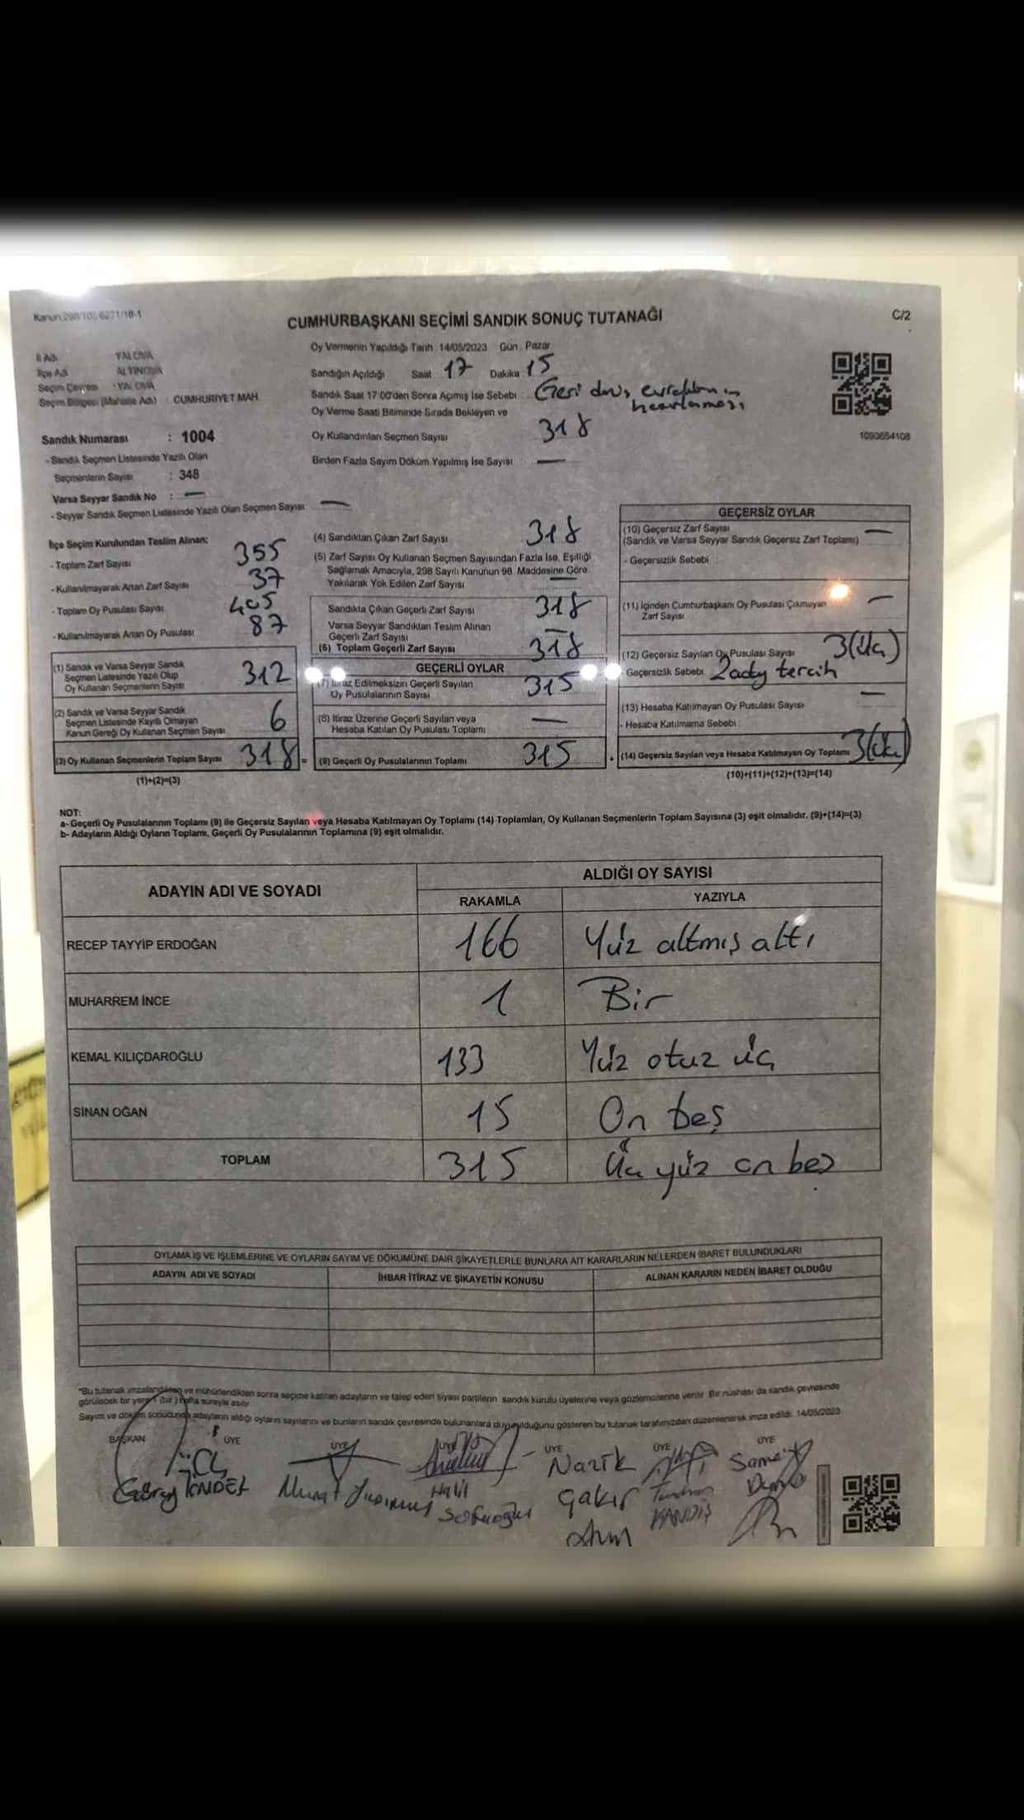 Kanun:298/105/6271/18-1
CUMHURBAŞKANI SEÇİMİ SANDIK SONUÇ TUTANAĞI
C/2
İl Adı YALOVA
İlçe Adı ALTINOVA
Seçim Çevresi YALOVA
Seçim Bölgesi (Mahalle Adı) : CUMHURİYET MAH.
Sandık Numarası : 1004
- Sandık Seçmen Listesinde Yazılı Olan
Seçmenlerin Sayısı : 348
Varsa Seyyar Sandık No : —
- Seyyar Sandık Seçmen Listesinde Yazılı Olan Seçmen Sayısı —
Oy Vermenin Yapıldığı Tarih 14/05/2023 Gün : Pazar
Sandığın Açıldığı Saat 17 Dakika 15
Sandık Saat 17:00'den Sonra Açılmış İse Sebebi : Geri dönüş evrakların
hazırlanması
Oy Verme Saati Bitiminde Sırada Bekleyen ve
Oy Kullandırılan Seçmen Sayısı 318
Birden Fazla Sayım Döküm Yapılmış İse Sayısı : —
1093654108
İlçe Seçim Kurulundan Teslim Alınan:
- Toplam Zarf Sayısı 355
- Kullanılmayarak Artan Zarf Sayısı 37
- Toplam Oy Pusulası Sayısı 405
- Kullanılmayarak Artan Oy Pusulası 87
(1) Sandık ve Varsa Seyyar Sandık
Seçmen Listesinde Yazılı Olup
Oy Kullanan Seçmenlerin Sayısı 312
(2) Sandık ve Varsa Seyyar Sandık
Seçmen Listesinde Kayıtlı Olmayan
Kanun Gereği Oy Kullanan Seçmen Sayısı 6
(3) Oy Kullanan Seçmenlerin Toplam Sayısı 318 =
(1)+(2)=(3)
(4) Sandıktan Çıkan Zarf Sayısı 318
(5) Zarf Sayısı Oy Kullanan Seçmen Sayısından Fazla İse, Eşitliği
Sağlamak Amacıyla, 298 Sayılı Kanunun 98. Maddesine Göre
Yakılarak Yok Edilen Zarf Sayısı —
Sandıkta Çıkan Geçerli Zarf Sayısı 318
Varsa Seyyar Sandıktan Teslim Alınan
Geçerli Zarf Sayısı —
(6) Toplam Geçerli Zarf Sayısı 318
GEÇERLİ OYLAR
(7) İtiraz Edilmeksizin Geçerli Sayılan
Oy Pusulalarının Sayısı 315
(8) İtiraz Üzerine Geçerli Sayılan veya
Hesaba Katılan Oy Pusulası Toplamı —
(9) Geçerli Oy Pusulalarının Toplamı 315
GEÇERSİZ OYLAR
(10) Geçersiz Zarf Sayısı —
(Sandık ve Varsa Seyyar Sandık Geçersiz Zarf Toplamı)
- Geçersizlik Sebebi :
(11) İçinden Cumhurbaşkanı Oy Pusulası Çıkmayan
Zarf Sayısı —
(12) Geçersiz Sayılan Oy Pusulası Sayısı 3(üç)
Geçersizlik Sebebi 2 aday tercih
(13) Hesaba Katılmayan Oy Pusulası Sayısı —
- Hesaba Katılmama Sebebi :
(14) Geçersiz Sayılan veya Hesaba Katılmayan Oy Toplamı 3(üç)
(10)+(11)+(12)+(13)=(14)
NOT:
a- Geçerli Oy Pusulalarının Toplamı (9) ile Geçersiz Sayılan veya Hesaba Katılmayan Oy Toplamı (14) Toplamları, Oy Kullanan Seçmenlerin Toplam Sayısına (3) eşit olmalıdır. (9)+(14)=(3)
b- Adayların Aldığı Oyların Toplamı, Geçerli Oy Pusulalarının Toplamına (9) eşit olmalıdır.
ADAYIN ADI VE SOYADI
ALDIĞI OY SAYISI
RAKAMLA YAZIYLA
RECEP TAYYİP ERDOĞAN 166 Yüz altmış altı
MUHARREM İNCE 1 Bir
KEMAL KILIÇDAROĞLU 133 Yüz otuz üç
SİNAN OĞAN 15 On beş
TOPLAM 315 Üç yüz on beş
OYLAMA İŞ VE İŞLEMLERİNE VE OYLARIN SAYIM VE DÖKÜMÜNE DAİR ŞİKAYETLERLE BUNLARA AİT KARARLARIN NELERDEN İBARET BULUNDUKLARI
ADAYIN ADI VE SOYADI İHBAR İTİRAZ VE ŞİKAYETİN KONUSU ALINAN KARARIN NEDEN İBARET OLDUĞU
*Bu tutanak imzalandıktan ve mühürlendikten sonra seçime katılan adayların ve talep eden siyasi partilerin sandık kurulu üyelerine veya gözlemcilerine verilir. Bir nüshası da sandık çevresinde
görülecek bir yere 1 (bir) hafta süreyle asılır.
Sayım ve döküm sonucunda adayların aldığı oyların sayılarını ve bunların sandık çevresinde bulunanlara duyurulduğunu gösteren bu tutanak tarafımızdan düzenlenerek imza edildi. 14/05/2023
BAŞKAN ÜYE ÜYE ÜYE ÜYE ÜYE ÜYE
Murat Halil Nazik
Çakır